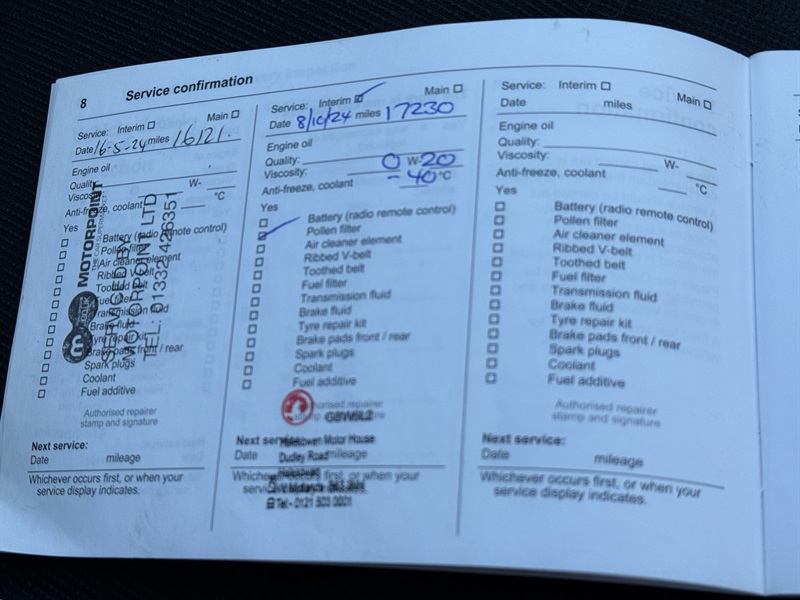 8 Service confirmation
Service: Interim ☐ Main ☐
Date 16-5-24 miles 16121.
Engine oil
Quality:
Viscosity: W-
Anti-freeze, coolant °C
Yes
☐ Battery (radio remote control)
☐ Pollen filter
☐ Air cleaner element
☐ Ribbed V-belt
☐ Toothed belt
☐ Fuel filter
☐ Transmission fluid
☐ Brake fluid
☐ Tyre repair kit
☐ Brake pads front / rear
☐ Spark plugs
☐ Coolant
☐ Fuel additive
Authorised repairer
stamp and signature
MOTORPOINT
THE CAR SUPERMARKET
MOTORPOINT LTD
TEL: 01332 426351
Next service:
Date mileage
Whichever occurs first, or when your
service display indicates.
Service: Interim ☑ Main ☐
Date 8/10/24 miles 17230
Engine oil
Quality:
Viscosity: 0 W-20
Anti-freeze, coolant -40 °C
Yes
☐ Battery (radio remote control)
☑ Pollen filter
☐ Air cleaner element
☐ Ribbed V-belt
☐ Toothed belt
☐ Fuel filter
☐ Transmission fluid
☐ Brake fluid
☐ Tyre repair kit
☐ Brake pads front / rear
☐ Spark plugs
☐ Coolant
☐ Fuel additive
Authorised repairer
stamp and signature
Next service:
Motor House
Dudley Road
Date mileage
Whichever occurs first, or when your
service display indicates.
Tel:- 0121 503 0001
Service: Interim ☐ Main ☐
Date miles
Engine oil
Quality:
Viscosity: W-
Anti-freeze, coolant °C
Yes
☐ Battery (radio remote control)
☐ Pollen filter
☐ Air cleaner element
☐ Ribbed V-belt
☐ Toothed belt
☐ Fuel filter
☐ Transmission fluid
☐ Brake fluid
☐ Tyre repair kit
☐ Brake pads front / rear
☐ Spark plugs
☐ Coolant
☐ Fuel additive
Authorised repairer
stamp and signature
Next service:
Date mileage
Whichever occurs first, or when your
service display indicates.